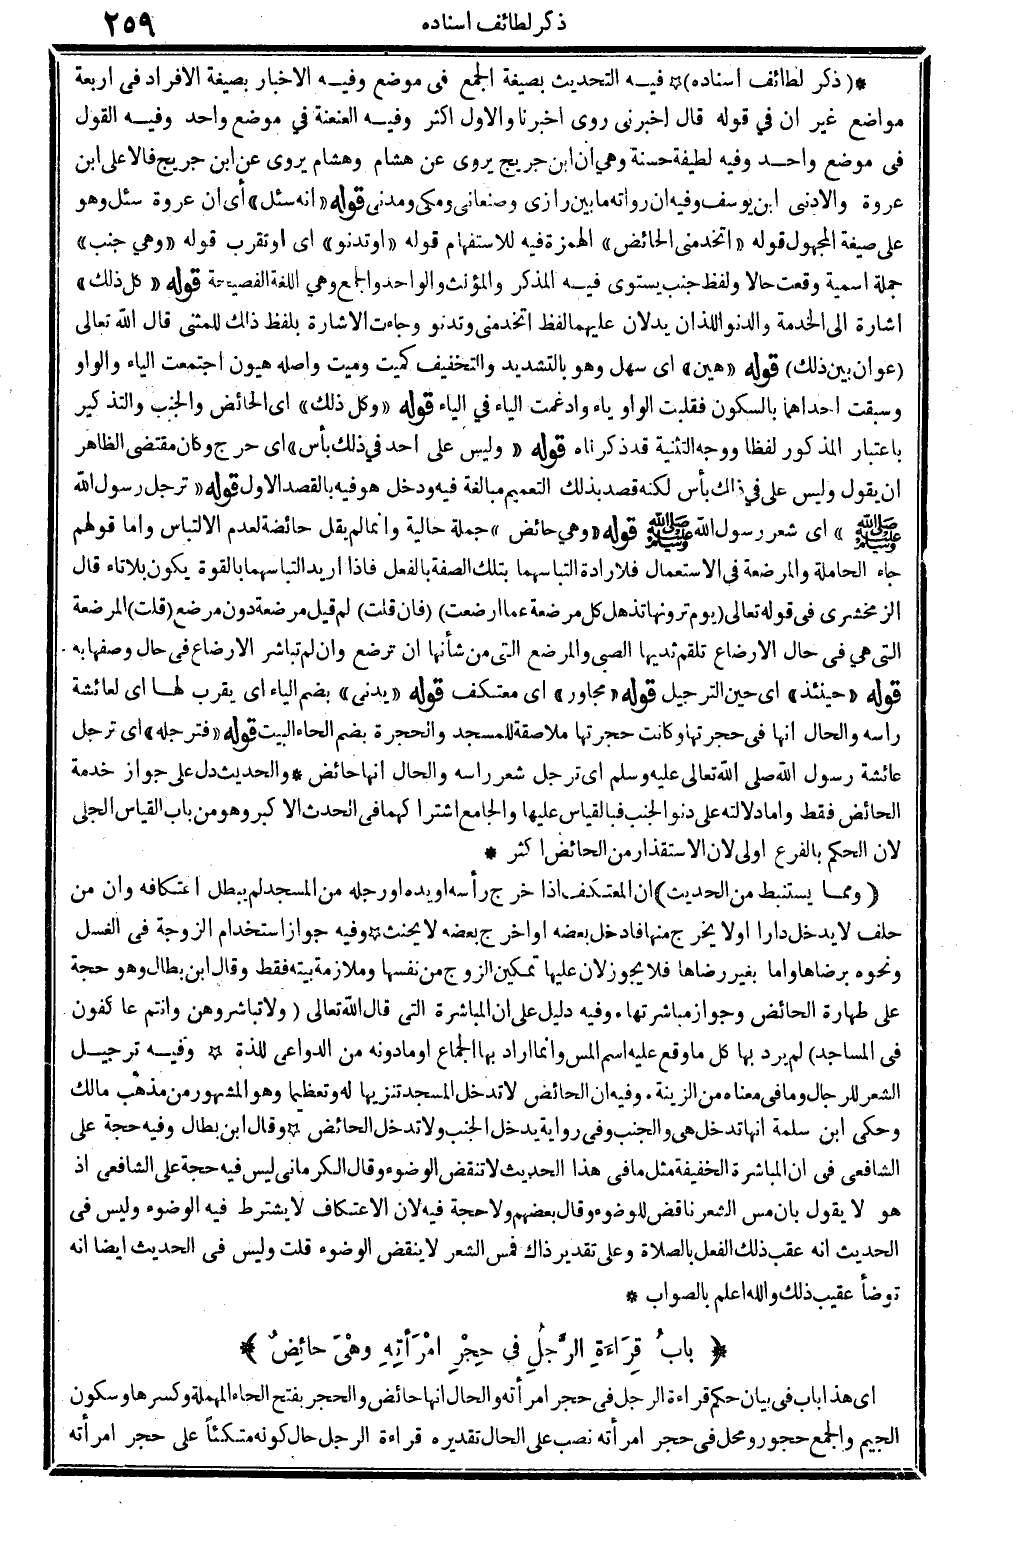 ذكر لطائف اسناده ٢٥٩
*( ذكر لطائف اسناده)☆ فيه التحديث بصيغة الجمع فى موضع وفيه الاخبار بصيغة الافراد فى اربعة
مواضع غير ان في قوله قال اخبرنى روى اخبرنا والاول اكثر وفيه العنعنة في موضع واحد وفيه القول
فى موضع واحد وفيه لطيفة حسنة وهي ان ابن جريج يروى عن هشام وهشام يروى عن ابن جريج فالاعلى ابن
عروة والادنى ابن يوسف وفيه ان رواته ما بين رازى وصنعانى ومكى ومدنى قوله «انه سئل» أى ان عروة سئل وهو
على صيغة المجهول قوله «اتخدمنى الحائض» الهمزة فيه للاستفهام قوله «او تدنو» اى او تقرب قوله «وهي جنب»
جملة اسمية وقعت حالا ولفظ جنب يستوى فيه المذكر والمؤنث والواحد والجمع وهي اللغة الفصيحة قوله « كل ذلك»
اشارة الى الخدمة والدنو اللذان يدلان عليهما لفظ اتخدمنى وتدنو وجاءت الاشارة بلفظ ذاك للمثنى قال الله تعالى
(عوان بين ذلك) قوله «هين» اى سهل وهو بالتشديد والتخفيف كميت وميت واصله هيون اجتمعت الياء والواو
وسبقت احداهما بالسكون فقلبت الواو ياء وادغمت الياء في الياء قوله «وكل ذلك» اى الحائض والجنب والتذكير
باعتبار المذكور لفظا ووجه التثنية قد ذكرناه قوله « وليس على احد في ذلك بأس» اى حرج وكان مقتضى الظاهر
ان يقول وليس على في ذاك بأس لكنه قصد بذلك التعميم مبالغة فيه ودخل هو فيه بالقصد الاول قوله « ترجل رسول الله
ﷺ » اى شعر رسول الله ﷺ قوله «وهي حائض » جملة حالية وانما لم يقل حائضة لعدم الالتباس واما قولهم
جاء الحاملة والمرضعة فى الاستعمال فلارادة التباسهما بتلك الصفة بالفعل فاذا اريد التباسهما بالقوة يكون بلاتاء قال
الزمخشرى فى قوله تعالى (يوم ترونها تذهل كل مرضعة عما ارضعت) (فان قلت) لم قيل مرضعة دون مرضع (قلت) المرضعة
التى هي فى حال الارضاع تلقم ثديها الصبى والمرضع التى من شأنها ان ترضع وان لم تباشر الارضاع فى حال وصفها به
قوله «حينئذ» اى حين الترجيل قوله «مجاور» اى معتكف قوله «يدنى» بضم الياء اى يقرب لها اى لعائشة
راسه والحال انها فى حجرتها وكانت حجرتها ملاصقة للمسجد والحجرة بضم الحاء البيت قوله «فترجله» اى ترجل
عائشة رسول الله صلى الله تعالى عليه وسلم اى ترجل شعر راسه والحال انها حائض * والحديث دل على جواز خدمة
الحائض فقط واما دلالته على دنو الجنب فبالقياس عليها والجامع اشتراكهما فى الحدث الاكبر وهو من باب القياس الجلى
لان الحكم بالفرع اولى لان الاستقذار من الحائض اكثر *
( ومما يستنبط من الحديث) ان المعتكف اذا خرج رأسه او يده او رجله من المسجد لم يبطل اعتكافه وان من
حلف لا يدخل دارا اولا يخرج منها فادخل بعضه او اخرج بعضه لا يحنث ☆ وفيه جواز استخدام الزوجة فى الغسل
ونحوه برضاها واما بغير رضاها فلا يجوز لان عليها تمكين الزوج من نفسها وملازمة بيته فقط وقال ابن بطال وهو حجة
على طهارة الحائض وجواز مباشرتها . وفيه دليل على ان المباشرة التى قال الله تعالى ( ولا تباشروهن وانتم عاكفون
فى المساجد) لم يرد بها كل ما وقع عليه اسم المس وانما اراد بها الجماع او ما دونه من الدواعى للذة ☆ وفيه ترجيل
الشعر للرجال وما فى معناه من الزينة . وفيه ان الحائض لا تدخل المسجد تنزيها له وتعظيما وهو المشهور من مذهب مالك
وحكى ابن سلمة انها تدخل هى والجنب وفى رواية يدخل الجنب ولا تدخل الحائض ☆ وقال ابن بطال وفيه حجة على
الشافعى فى ان المباشرة الخفيفة مثل ما فى هذا الحديث لا تنقض الوضوء وقال الكرمانى ليس فيه حجة على الشافعى اذ
هو لا يقول بان مس الشعر ناقض للوضوء وقال بعضهم ولا حجة فيه لان الاعتكاف لا يشترط فيه الوضوء وليس فى
الحديث انه عقب ذلك الفعل بالصلاة وعلى تقدير ذاك فمس الشعر لا ينقض الوضوء قلت وليس فى الحديث ايضا انه
توضأ عقيب ذلك والله اعلم بالصواب *
﴿ بابُ قِرَاءَةِ الرَّجُلِ فِي حَجْرِ امْرَأَتِهِ وهْيَ حائِضٌ ﴾
اى هذا باب فى بيان حكم قراءة الرجل فى حجر امرأته والحال انها حائض والحجر بفتح الحاء المهملة وكسرها وسكون
الجيم والجمع حجور ومحل فى حجر امرأته نصب على الحال تقديره قراءة الرجل حال كونه متكئاً على حجر امرأته